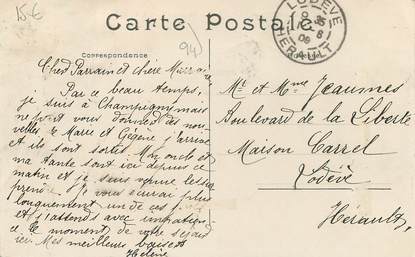 15€
Carte Postale
LODEVE
HERAULT
Correspondance
94
Adresse
Cher Parrain et chère Marraine
Par ce beau temps,
je suis à Champagny mais
ne peut vous donner des nou-
velles, Marie et Gégène
et ils sont sortis. Mon oncle et
ma tante sont ici depuis ce
matin et je suis venue les
prendre. Je vous écrirai plus
longuement un de ces
et j'attends avec impatien-
ce le moment de votre séjour
ici. Mes meilleurs baisers
Hélène
Mr et Mme Jeaumes
Boulevard de la Liberté
Maison Carrel
Lodève
Hérault